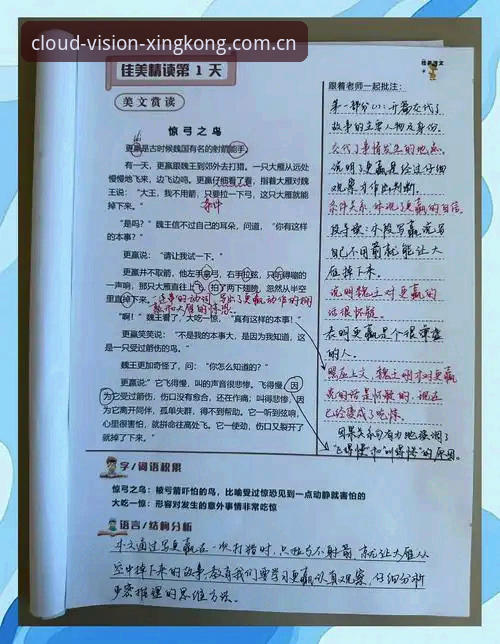 cloud-vision-xingkong.com.cn
佳美精读第1天
美文赏读
惊弓之鸟
更羸是古时候魏国有名的射箭能手。
有一天，更羸跟魏王到郊外去打猎。一只大雁从远处
慢慢地飞来，边飞边鸣。更羸仔细看了看，指着大雁对魏
王说："大王，我不用箭，只要拉一下弓，这只大雁就能
掉下来。"
条件
"是吗？"魏王信不过自己的耳朵，问道，"你有这样
的本事？"
更羸说："请让我试一下。"
更羸并不取箭，他左手拿弓，右手拉弦，只听得嘣的
一声响，那只大雁直往上飞，拍了两下翅膀，忽然从半空
里直掉下来。
连串的动词，写出了更羸动作的娴
"啊！"魏王看了，大吃一惊，"真有这样的本事！"
更羸笑笑说："不是我的本事大，是因为我知道，这
是一只受过箭伤的鸟。"
魏王更加奇怪了，问："你怎么知道的？"
更羸说："它飞得慢，叫的声音很悲惨。飞得慢，因
为它受过箭伤，伤口没有愈合，还在作痛；叫得悲惨，因
为它离开同伴，孤单失群，得不到帮助。它一听到弦响，
心里很害怕，就拼命往高处飞。它一使劲，伤口又裂开了
就掉了下来。"
跟着老师一起批注：
第一部分(1)：开篇交代了
故事的主要人物及身份。
交代了事情发生的地点。
说明了更羸是经过仔细
观察才作出判断。
条件关系 体现了更羸的自信。
段导读：本段写更羸说写
自己不用箭就能让大
雁掉下来。
说明魏王对更羸的
话很怀疑。
表明更羸是个很谦虚
的人。
照应上文，魏王刚才对更羸
说的话是怀疑的，现在
已经变成了吃惊。
因果关系句有力地强调了
"飞得慢"和"叫得惨"的原因。
字/词语积累
惊弓之鸟：被弓箭吓怕的鸟，比喻受过惊恐见到一点动静就害怕的
大吃一惊：形容对发生的意外事情非常吃惊
语言/结构分析
本文通过写更羸在一次打猎时，只拉弓不射箭，就让大雁从
空中掉下来的故事，教育我们要学习更羸认真观察，仔细分析
步密推理的思维方法。